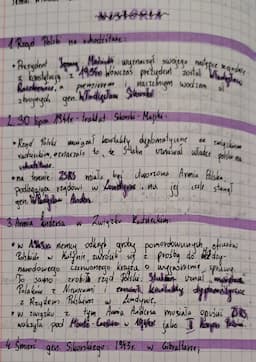 HISTORIA
1. Rząd Polski na uchodźstwie:
• Prezydent Ignacy Mościcki wyznaczył swojego następcę zgodnie
z konstytucją z 1935r wówczas prezydent został Władysław
Raczkiewicz, a premierem i naczelnym wodzem sił
zbrojnych gen. Władysław Sikorski
2. 30 lipca 1941r - Układ Sikorski - Majski:
• Rząd Polski nawiązał kontakty dyplomatyczne ze związkiem
radzieckim, to że Stalin uznawał władze polskie na
uchodźstwie.
• na terenie ZSRS miała być utworzona Armia Polska,
podlegająca rządowi w Londynie, na jej czele stanął
gen. Władysław Anders.
3. Armia Andersa w Związku Radzieckim:
• w 1943r niemcy odkryli groby pomordowanych oficerów
Polskich w Katyniu zwrócili się z prośbą do Między-
narodowego czerwonego krzyża o wyjaśnienie sprawy.
To samo zrobił rząd Polski. Stalin uznał
Polaków z Niemcami i zerwał kontakty dyplomatyczne
z Rządem Polskim w Londynie,
• w związku z tym Armia Andersa musiała opuścić ZSRS
walczyła pod Monte Cassino w 1944r jako II Korpus Polski.
4. Śmierć gen. Sikorskiego 1943r. w Gibraltarze;